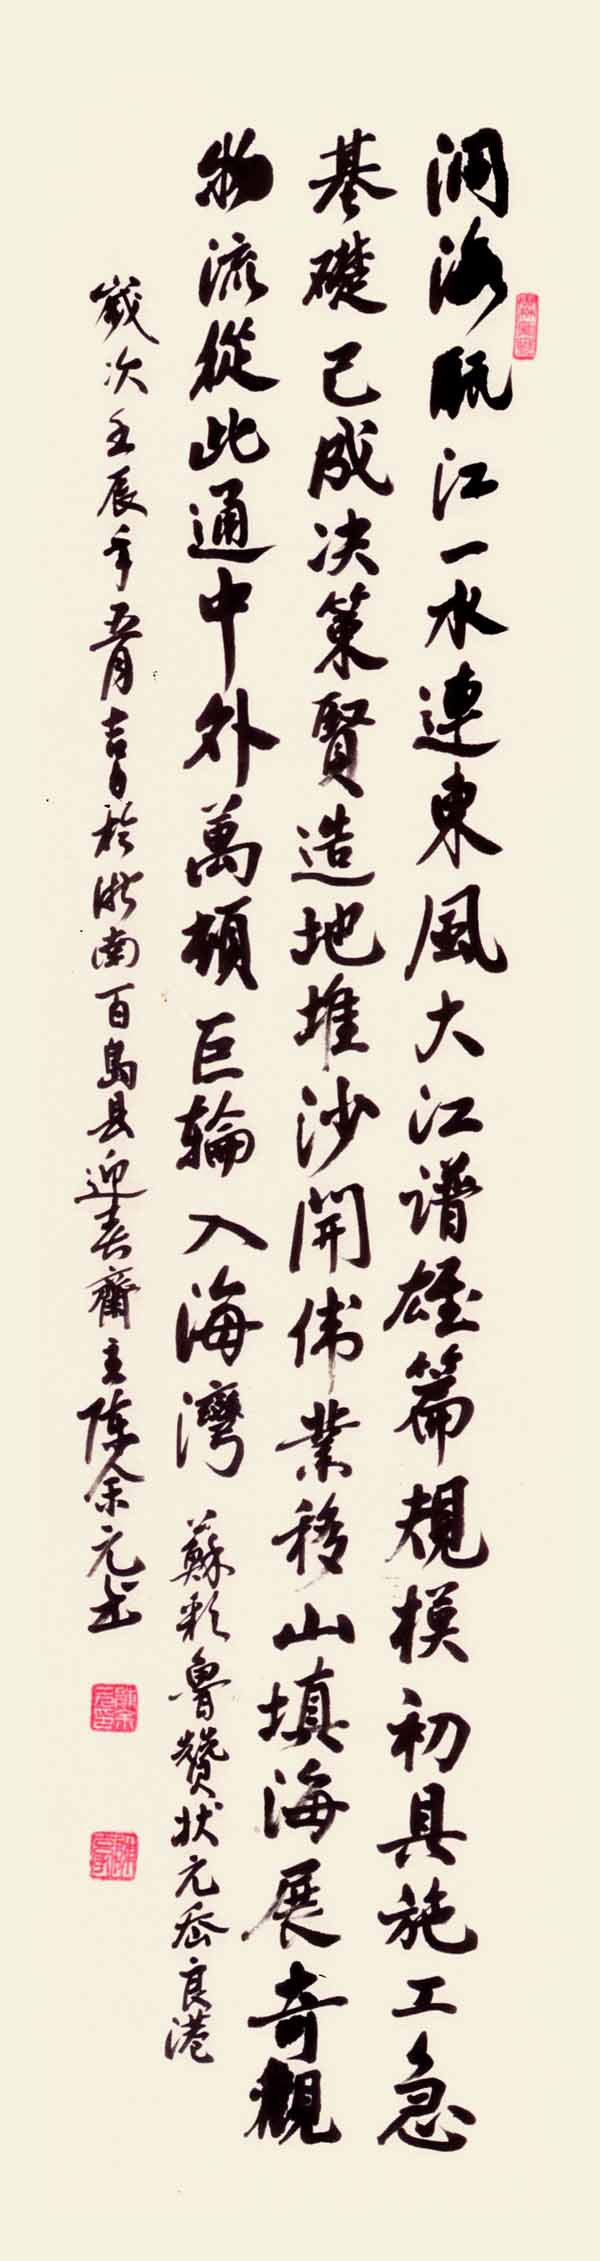 洞海甌江一水連東風大江譜雄篇規模初具施工急
基礎已成决策賢造地堆沙開偉業移山填海展奇觀
物流從此通中外萬頓巨輪入海灣
蘇彩魯贊狀元岙良港
歲次壬辰年五月吉日於浙南百島县迎春齋主陈余元书